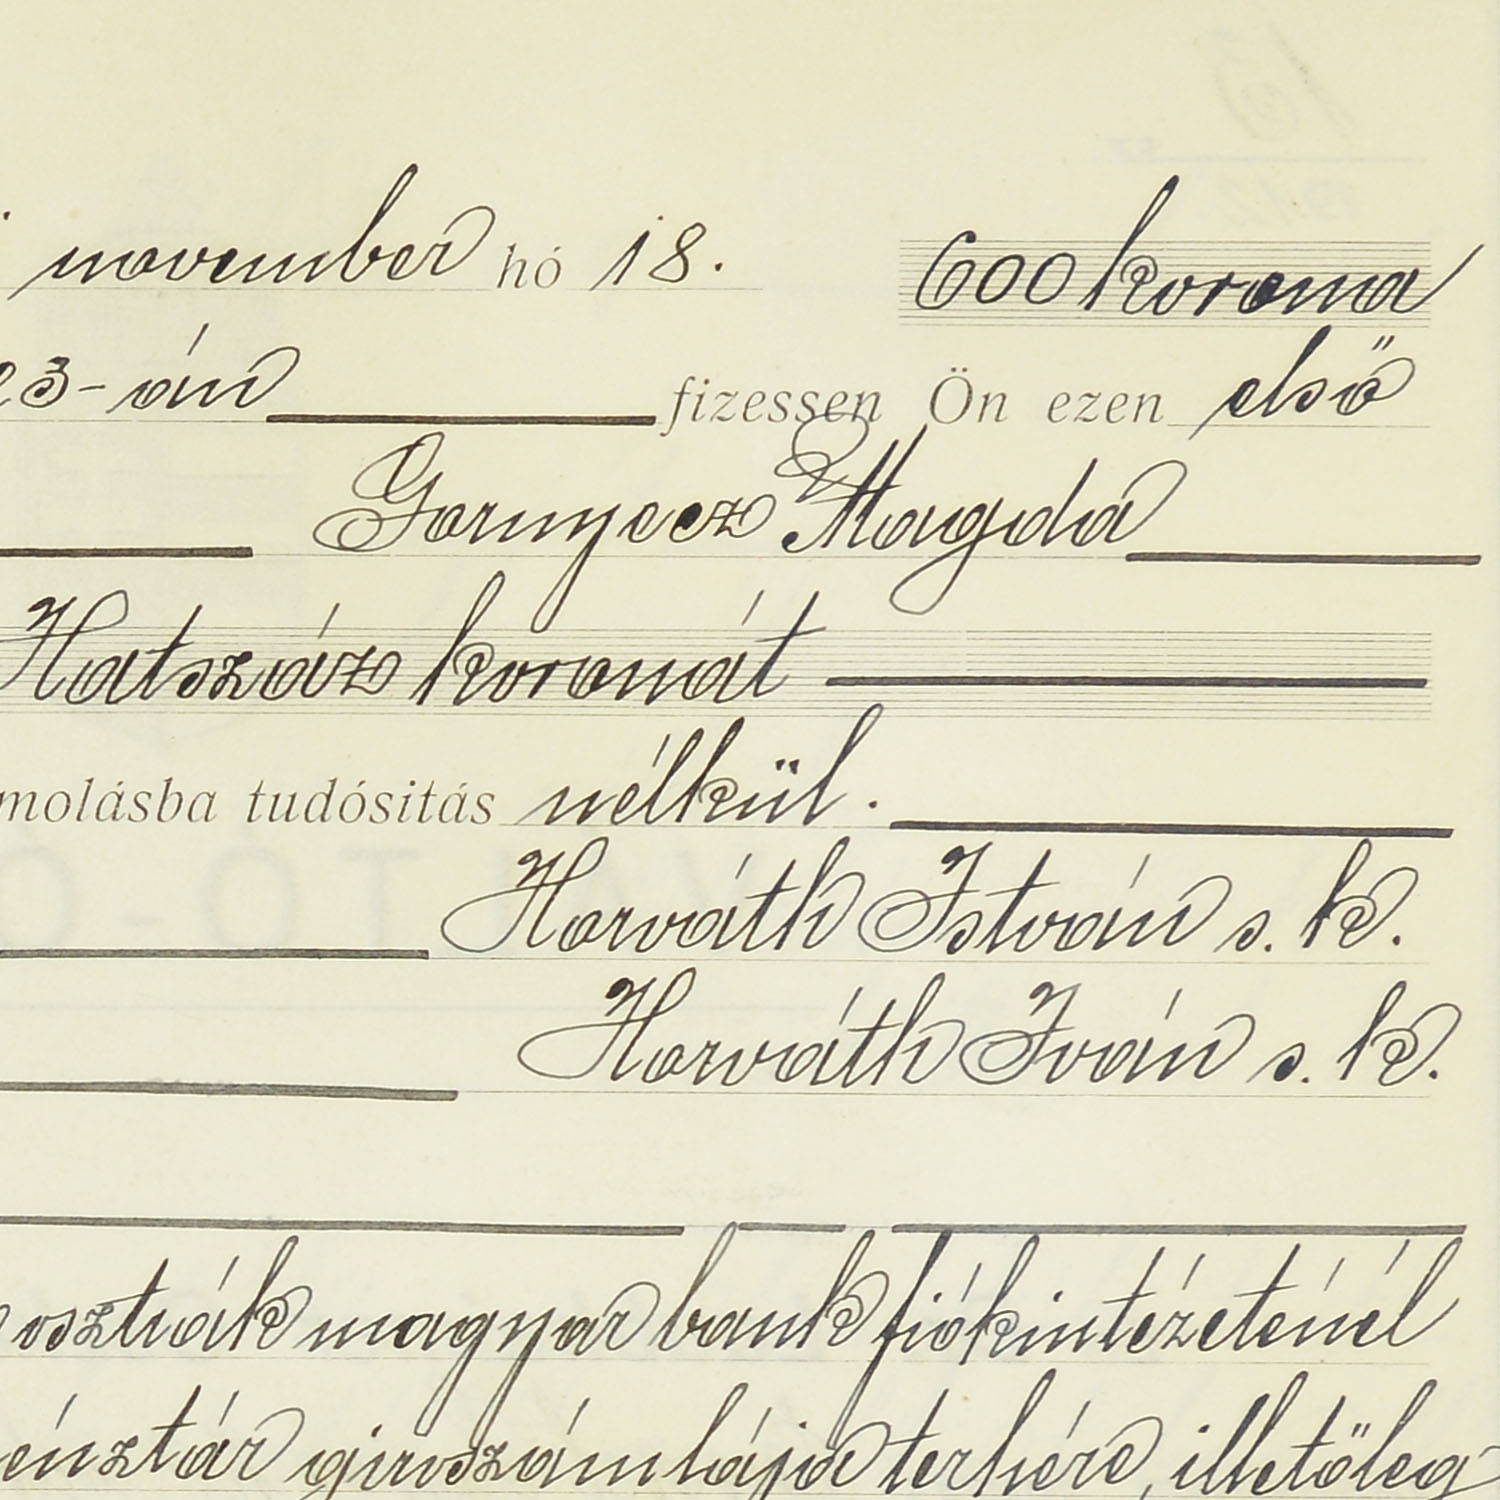 november hó 18. 600 korona
23-án fizessen Ön ezen első
Gornyecz Magda
Hatszáz koronát
molásba tudósitás nélkül.
Horváth István s. k.
Horváth Iván s. k.
osztrák magyar bank fiókintézeténél
énztár giroszámlája terhére, illetőleg